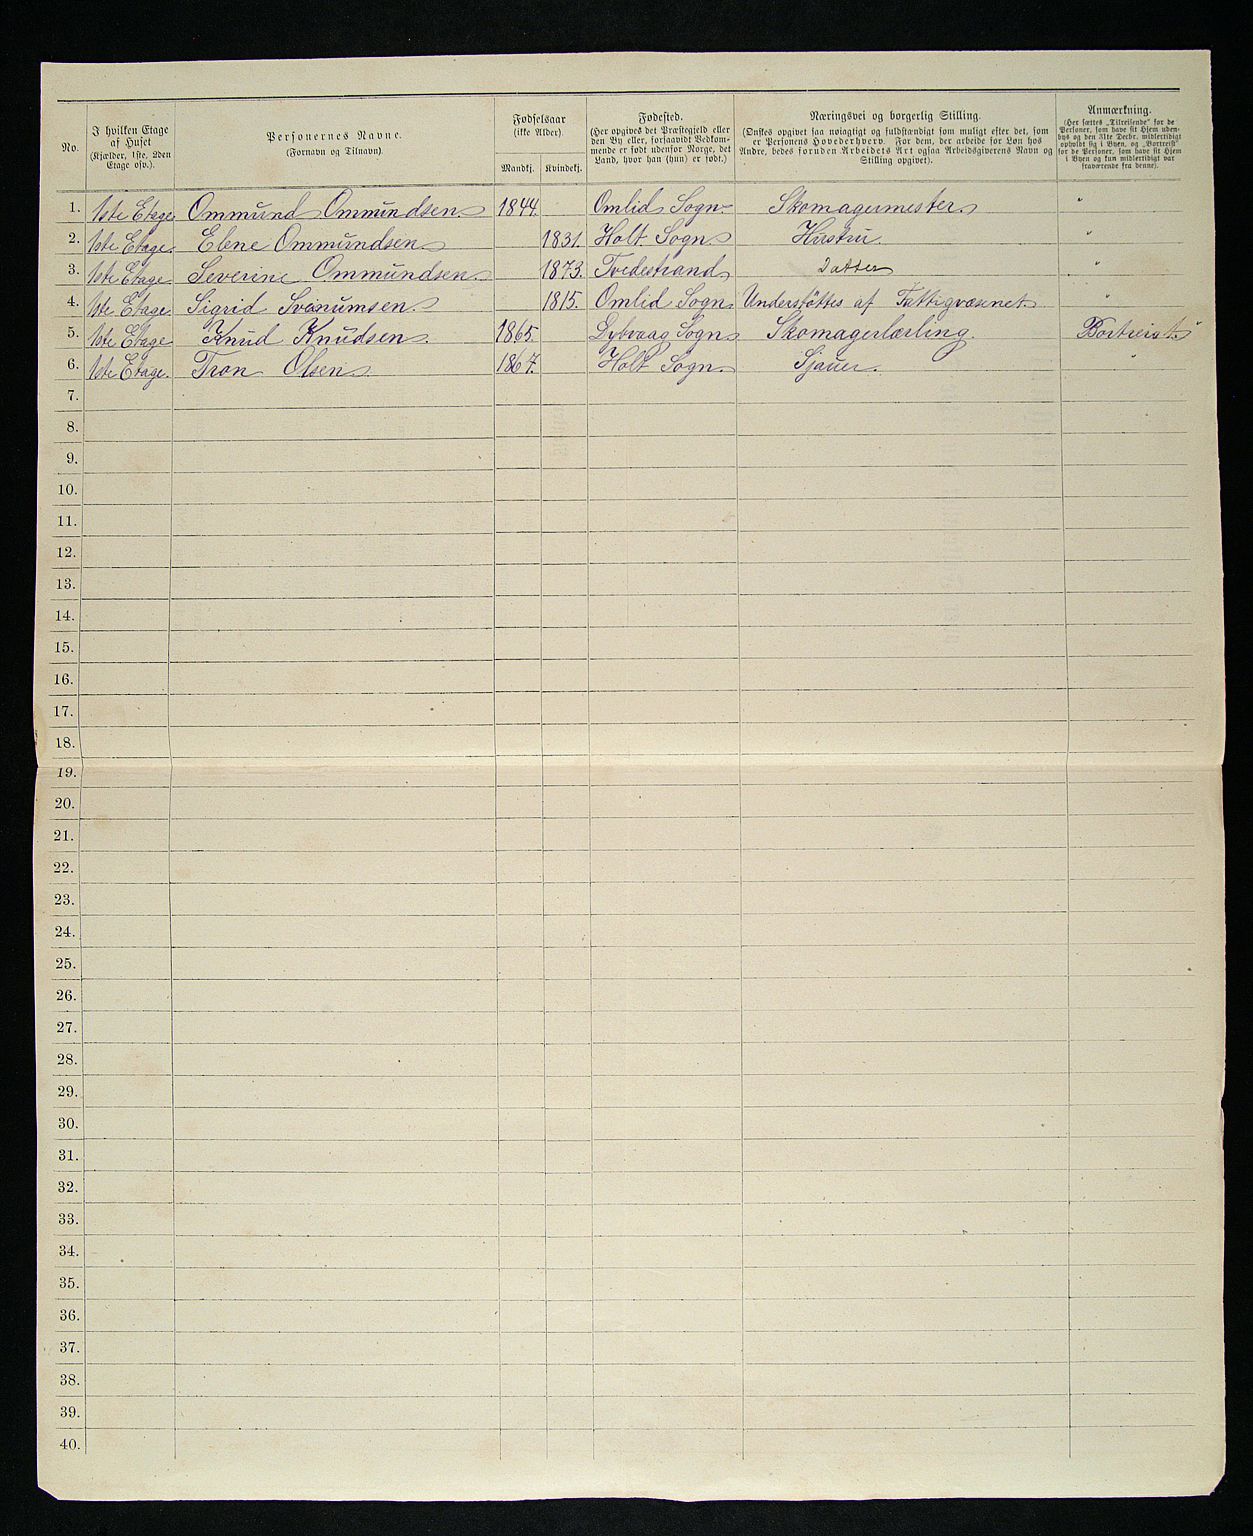 No.
I hvilken Etage
af Huset
(Kjælder, 1ste, 2den
Etage osv.).
Personernes Navne.
(Fornavn og Tilnavn).
Fødselsaar
(ikke Alder).
Mandkj. Kvindekj.
Fødested.
(Her opgives det Præstegjeld eller
den By eller, forsaavidt Vedkom-
mende er født udenfor Norge, det
Land, hvor han (hun) er født.)
Næringsvei og borgerlig Stilling.
(Ønskes opgivet saa nøiagtigt og fuldstændigt som muligt efter det, som
er Personens Hovederhverv. For dem, der arbeide for Løn hos
Andre, bedes foruden Arbeidets Art ogsaa Arbeidsgiverens Navn og
Stilling opgivet).
Anmærkning.
(Her sættes „Tilreisende“ for de
Personer, som have sit Hjem uden-
bys og den 31te Decbr. midlertidigt
opholdt sig i Byen, og „Bortreist“
for de Personer, som have sit Hjem
i Byen og kun midlertidigt var
fraværende fra denne).
1. 1ste Etage Ommund Ommundsen 1844. Omlid Sogn Skomagermester "
2. 1ste Etage. Elene Ommundsen 1831. Holt Sogn Hustru "
3. 1ste Etage. Severine Ommundsen. 1873. Tvedestrand Datter "
4. 1ste Etage. Sigrid 1815. Omlid Sogn Understøttes af Fattigvæsenet. "
5. 1ste Etage Knud Knudsen. 1865. Dybvaag Sogn Skomagerlærling. Bortreist.
6. 1ste Etage. Tron Olsen 1867. Holt Sogn. Sjauer. "
7.
8.
9.
10.
11.
12.
13.
14.
15.
16.
17.
18.
19.
20.
21.
22.
23.
24.
25.
26.
27.
28.
29.
30.
31.
32.
33.
34.
35.
36.
37.
38.
39.
40.